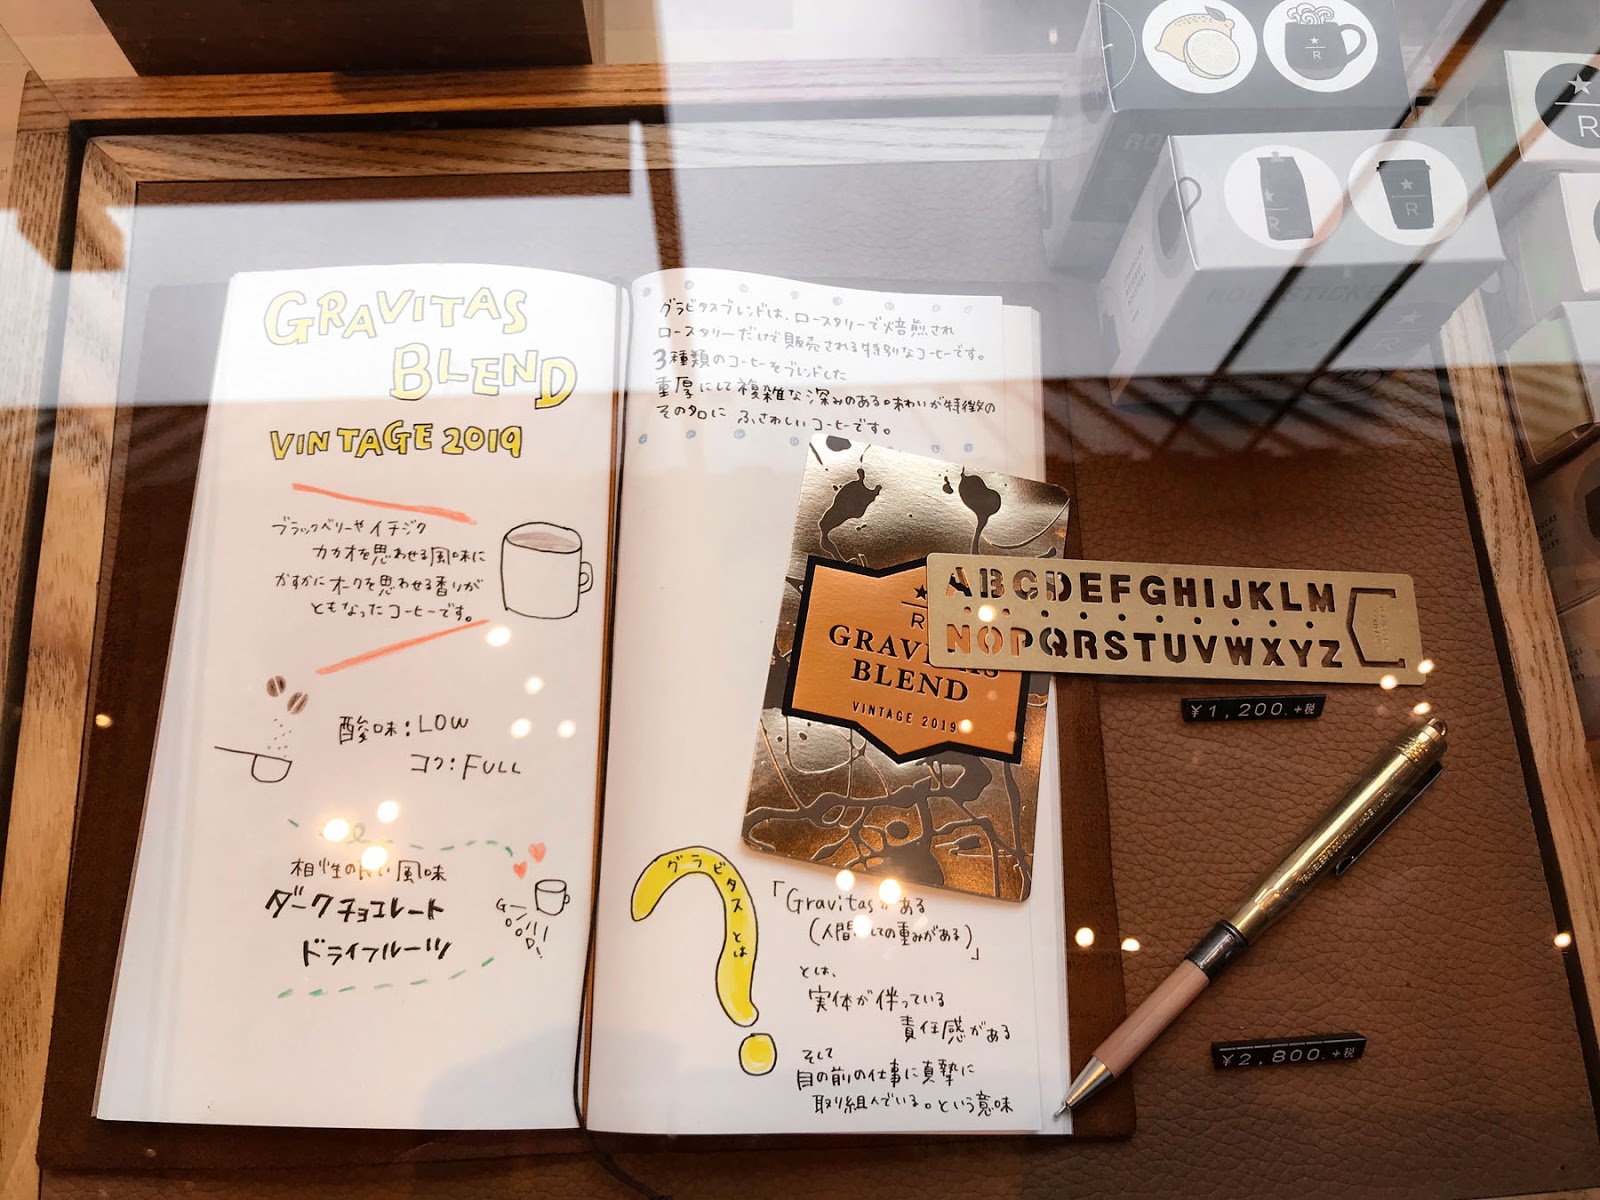 GRAVITAS
BLEND
VINTAGE 2019
ブラックベリーや イチジク
カカオを思わせる風味に
かすかにオークを思わせる香りが
ともなったコーヒーです。
酸味:LOW
コク:FULL
相性の良い風味
ダークチョコレート
ドライフルーツ
グラビタスブレンドは、ロースタリーで焙煎され
ロースタリーだけで販売される特別なコーヒーです。
3種類のコーヒーをブレンドした
重厚にして複雑な深みのある味わいが特徴の
その名に ふさわしいコーヒーです。
R
GRAVITAS
BLEND
VINTAGE 2019
ABCDEFGHIJKLM
NOPQRSTUVWXYZ
¥1,200.+税
グラビタスとは
「Gravitasがある
(人間としての重みがある)」
とは、
実体が伴っている
責任感がある
そして
目の前の仕事に真摯に
取り組んでいる。という意味
TRAVELER'S COMPANY MADE IN JAPAN
¥2,800.+税
R
R
R
R
ROLL STICKER